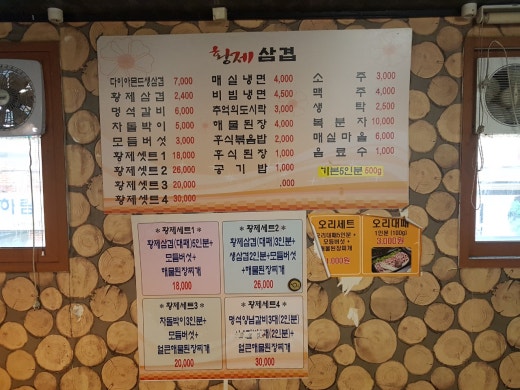 황제 삼겹
다이아몬드생삼겹 7,000
황제삼겹 2,400
명석갈비 6,000
차돌박이 5,000
모듬버섯 3,000
황제셋트1 18,000
황제셋트2 26,000
황제셋트3 20,000
황제셋트4 30,000
매실냉면 4,000
비빔냉면 4,500
추억의도시락 3,000
해물된장 4,000
후식볶음밥 2,000
후식된장 1,000
공기밥 1,000
,000
소주 3,000
맥주 4,000
생탁 2,500
복분자 10,000
매실마을 6,000
음료수 1,000
기본5인분 600g
* 황제세트1 *
황제삼겹(대패)5인분+
모듬버섯+
해물된장찌개
18,000
* 황제세트2 *
황제삼겹(대패)3인분+
생삼겹2인분+모듬버섯
+해물된장찌개
26,000
* 황제세트3 *
차돌박이3인분+
모듬버섯+
얼큰해물된장찌개
20,000
* 황제세트4 *
명석양념갈비3대(2인분)
(2인분)+
얼큰해물된장찌개
30,000
오리세트
오리대패5인분+
모듬버섯+
해물된장찌개
,000원
오리대패
1인분 (100g)
3,000원